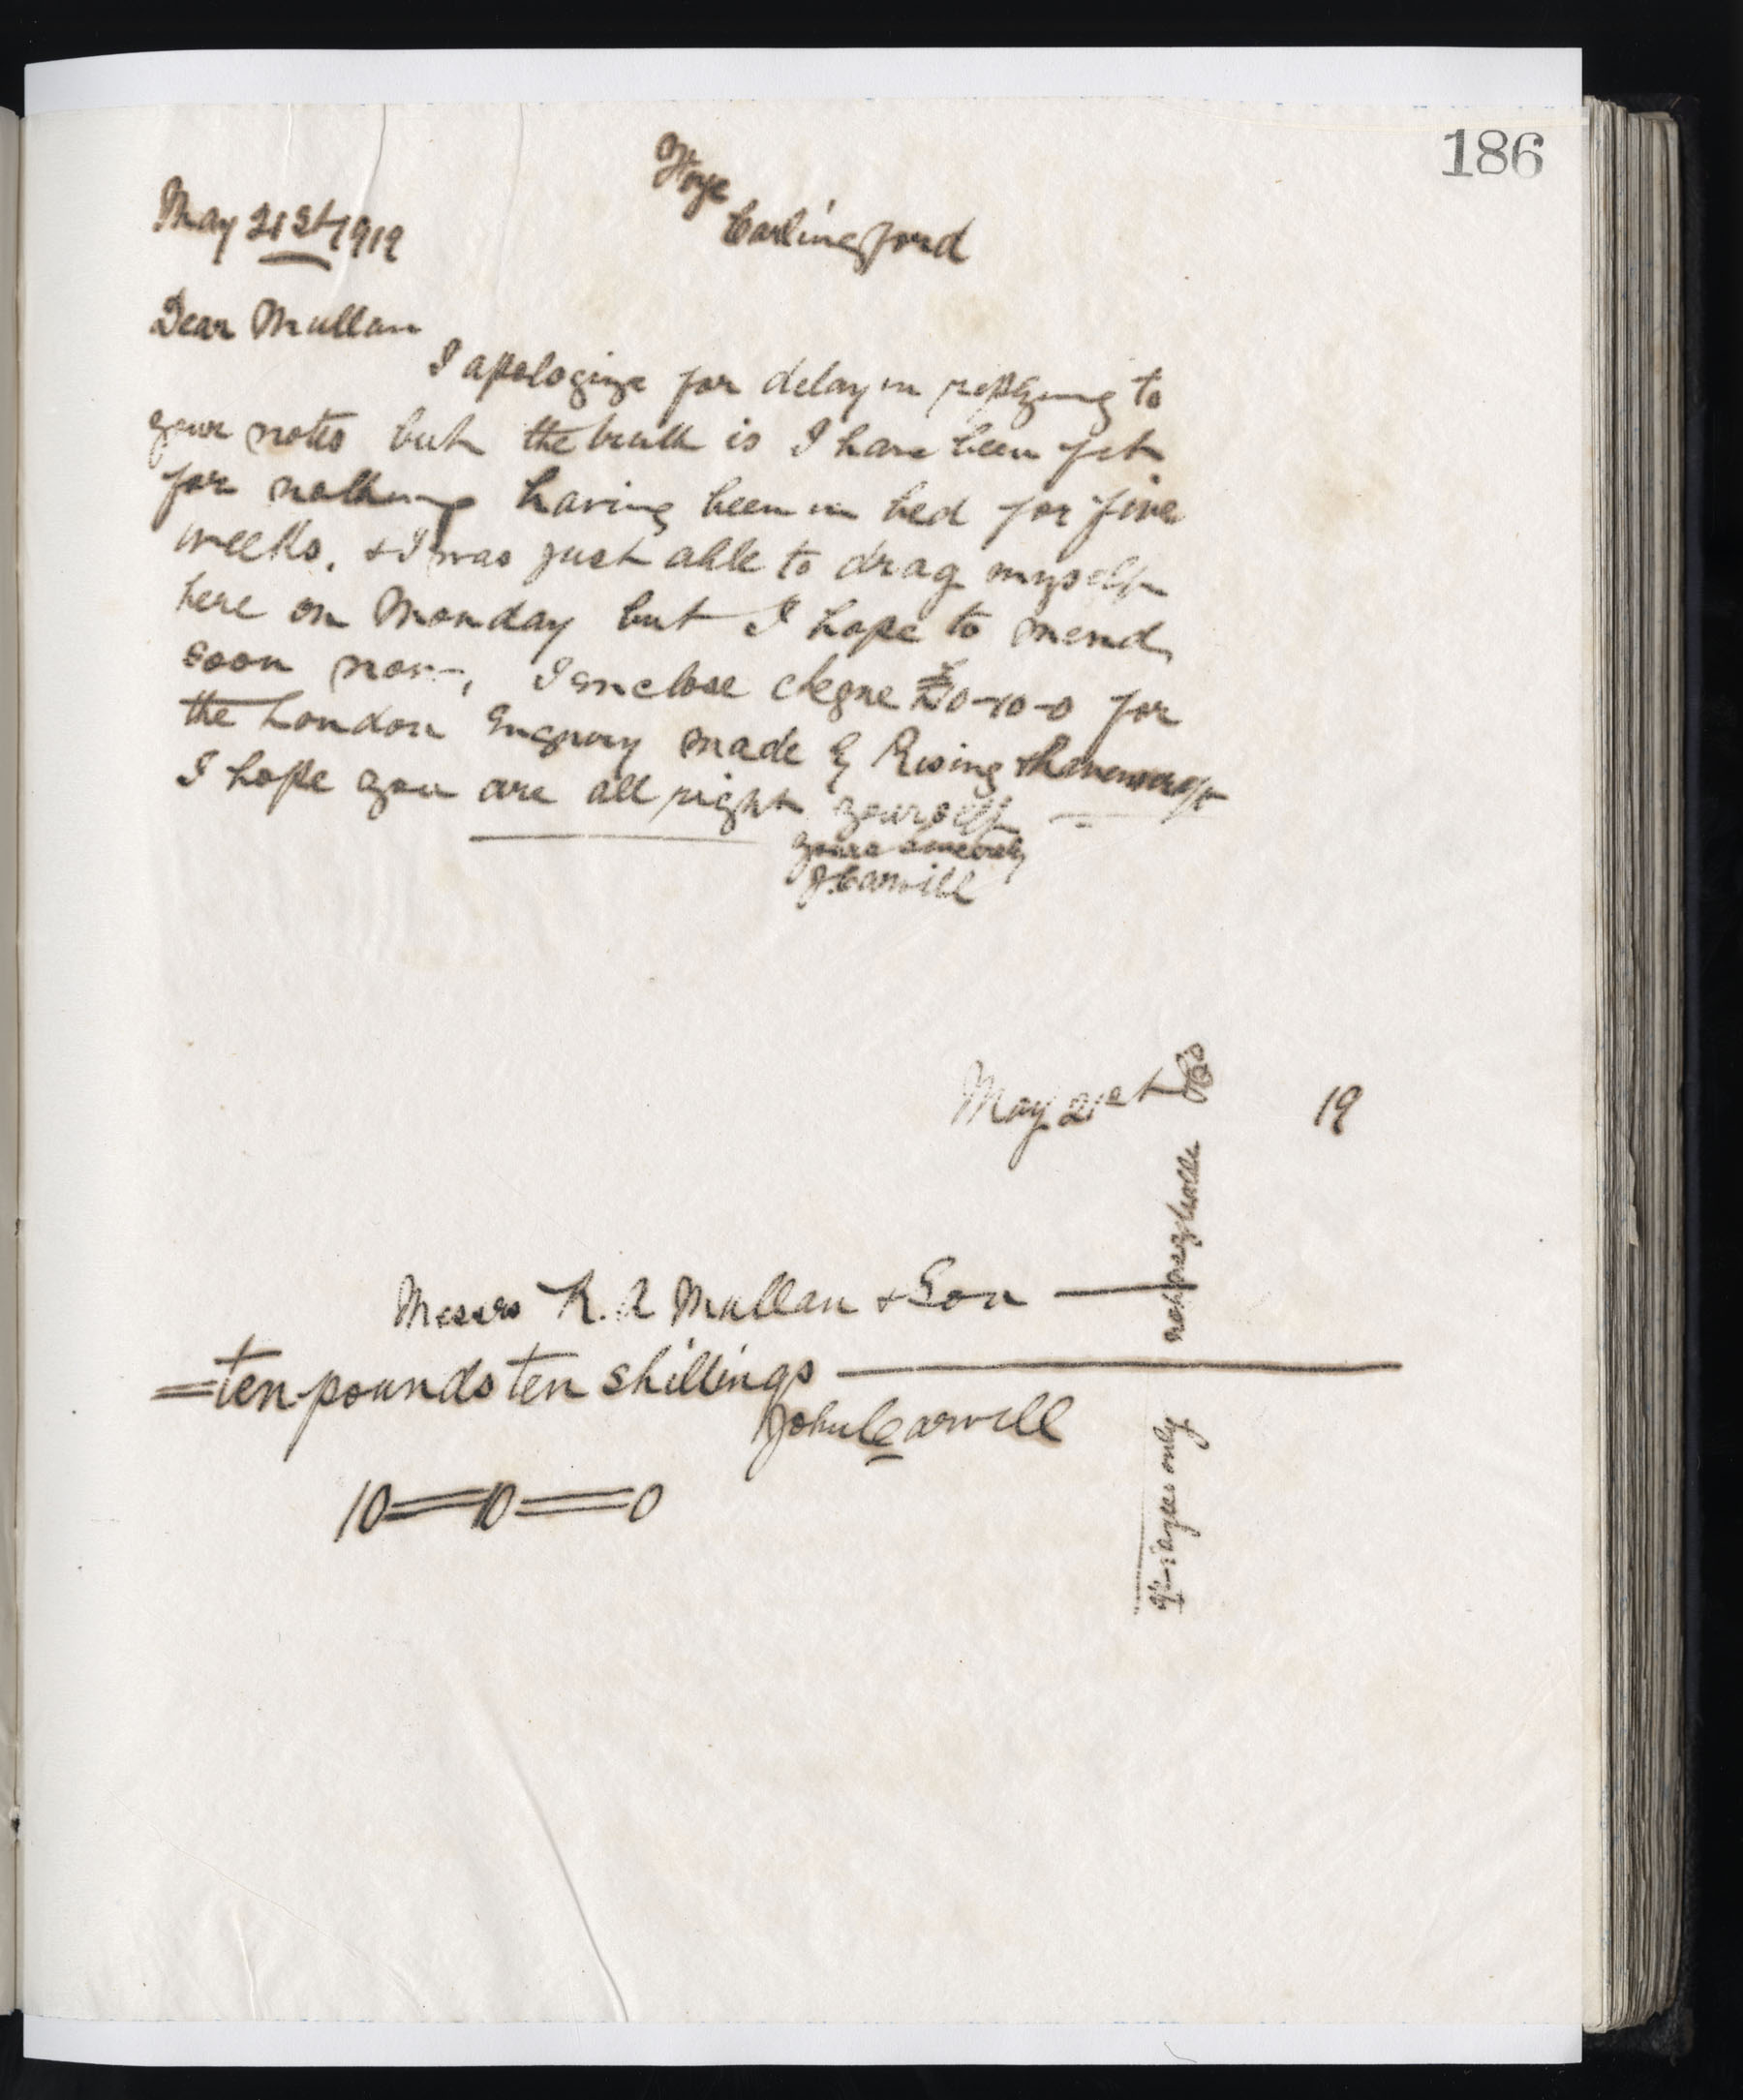 186
Carlingford
May 21st 1919
Dear Mullan
I apologize for delay in replying to
your notes but the truth is I have been fit
for nothing having been in bed for five
weeks. & I was just able to drag myself
here on Monday but I hope to mend
soon now, I enclose cheque £10-10-0 for
the London Enquiry made by Rising &
I hope you are all right yourself
Yours sincerely
J. Carvill
May 21st 19
Messrs R. A Mullan & Son
= ten pounds ten shillings
John Carvill
10=10=0
& Co
not negotiable
payees only